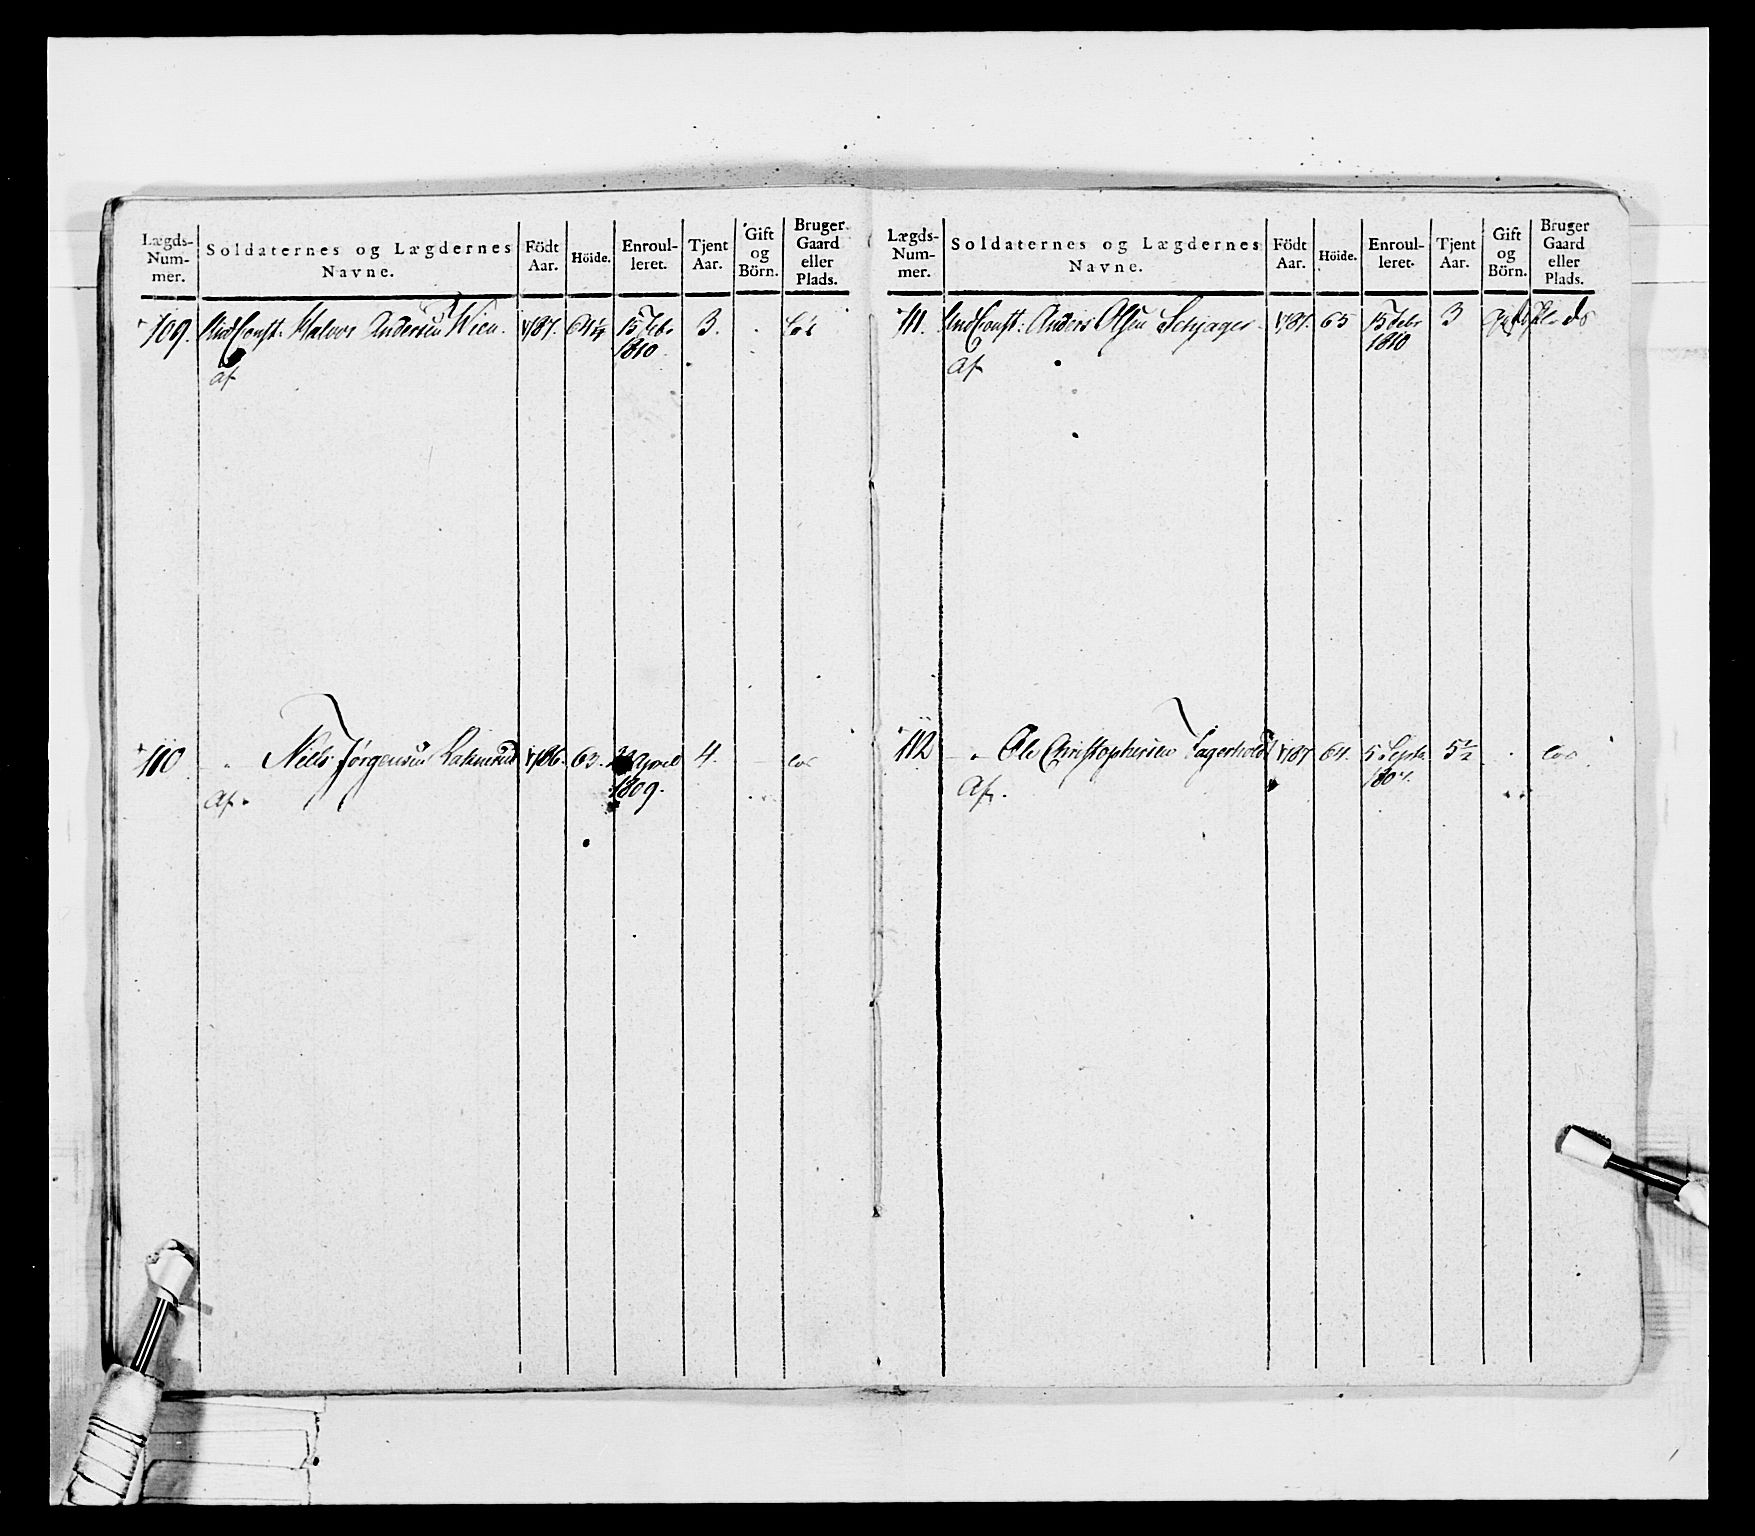 Lægds-
Num-
mer.
Soldaternes og Lægdernes
Navne.
Födt
Aar.
Höide.
Enroul-
leret.
Tjent
Aar.
Gift
og
Börn.
Bruger
Gaard
eller
Plads.
109. Halvor Andersen Wien. 1787. 64 15 Febr 3. løs
1810.
af
110 Niels Jørgensen 1786. 63. April 4. løs
1809.
Af.
Lægds-
Num-
mer.
Soldaternes og Lægdernes
Navne.
Födt
Aar.
Höide.
Enroul-
leret.
Tjent
Aar.
Gift
og
Börn.
Bruger
Gaard
eller
Plads.
111. Anders Olsen 1787. 65 15 Febr 3
1810
Af
112 Ole Christophersen Fagerholdt 1787 64. 5 Septr. 5½ løs
1807.
Af.